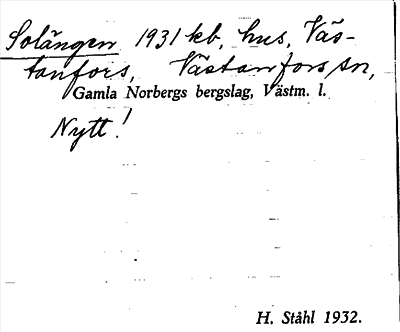 Solängen 1931 kb, hus, Väs-
tanfors, Västanfors sn,
Gamla Norbergs bergslag, Västm. l.
Nytt!
H. Ståhl 1932.